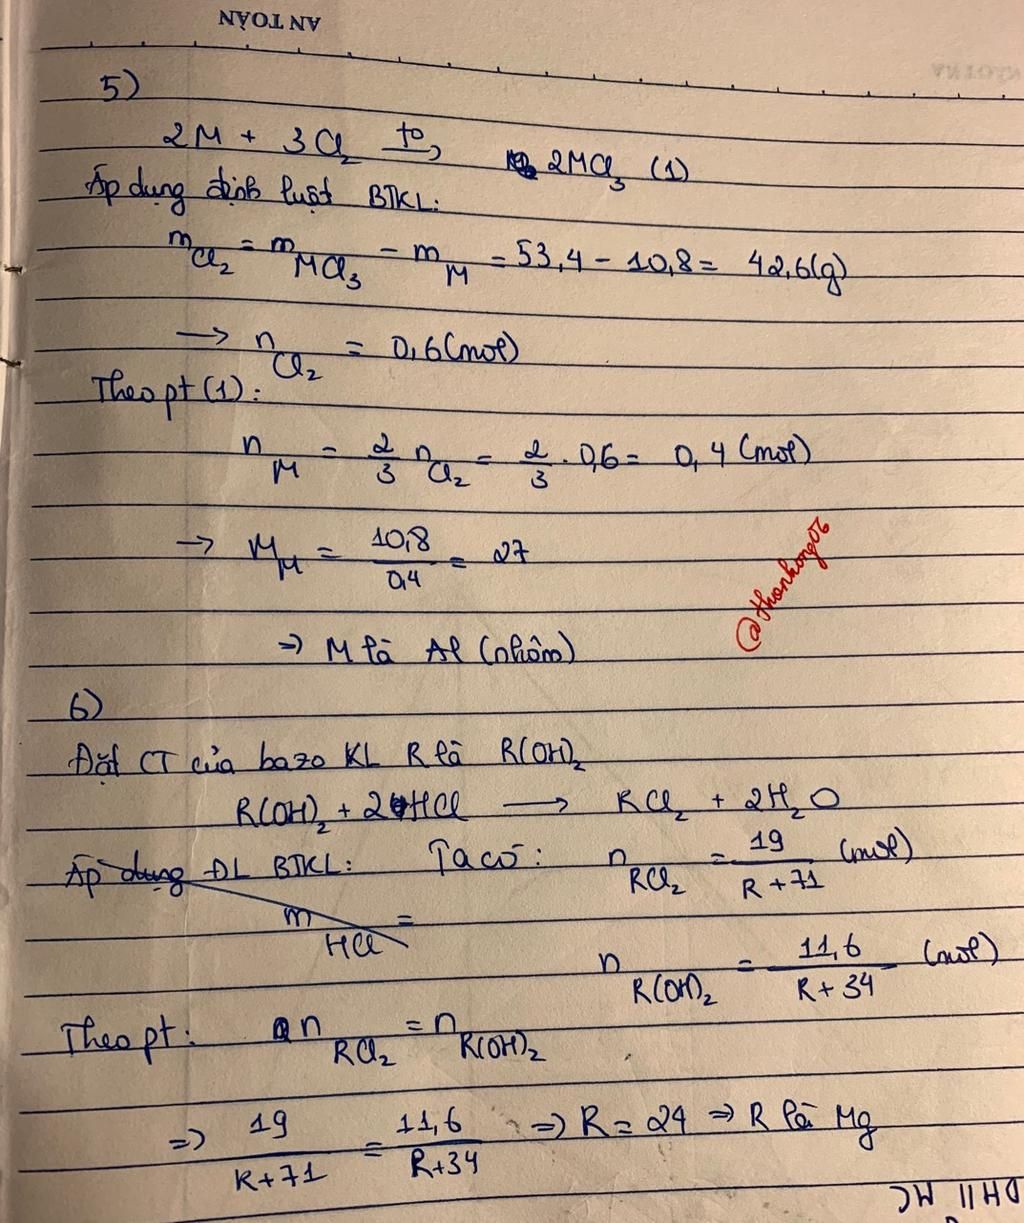 AN TOÀN
5)
2M + 3Cl₂ →(t°) 2MCl₃ (1)
Áp dụng định luật BTKL:
m_Cl₂ = m_MCl₃ - m_M = 53,4 - 10,8 = 42,6(g)
→ n_Cl₂ = 0,6(mol)
Theo pt (1):
n_M = 2/3 n_Cl₂ = 2/3 . 0,6 = 0,4 (mol)
→ M_M = 10,8/0,4 = 27
@thanhong06
⇒ M là Al (nhôm)
6)
Đặt CT của bazo KL R là R(OH)₂
R(OH)₂ + 2HCl → RCl₂ + 2H₂O
Áp dụng ĐL BTKL: Ta có: n_RCl₂ = 19/(R+71) (mol)
m_HCl =
n_R(OH)₂ = 11,6/(R+34) (mol)
Theo pt: n_RCl₂ = n_R(OH)₂
⇒ 19/(R+71) = 11,6/(R+34) ⇒ R = 24 ⇒ R là Mg